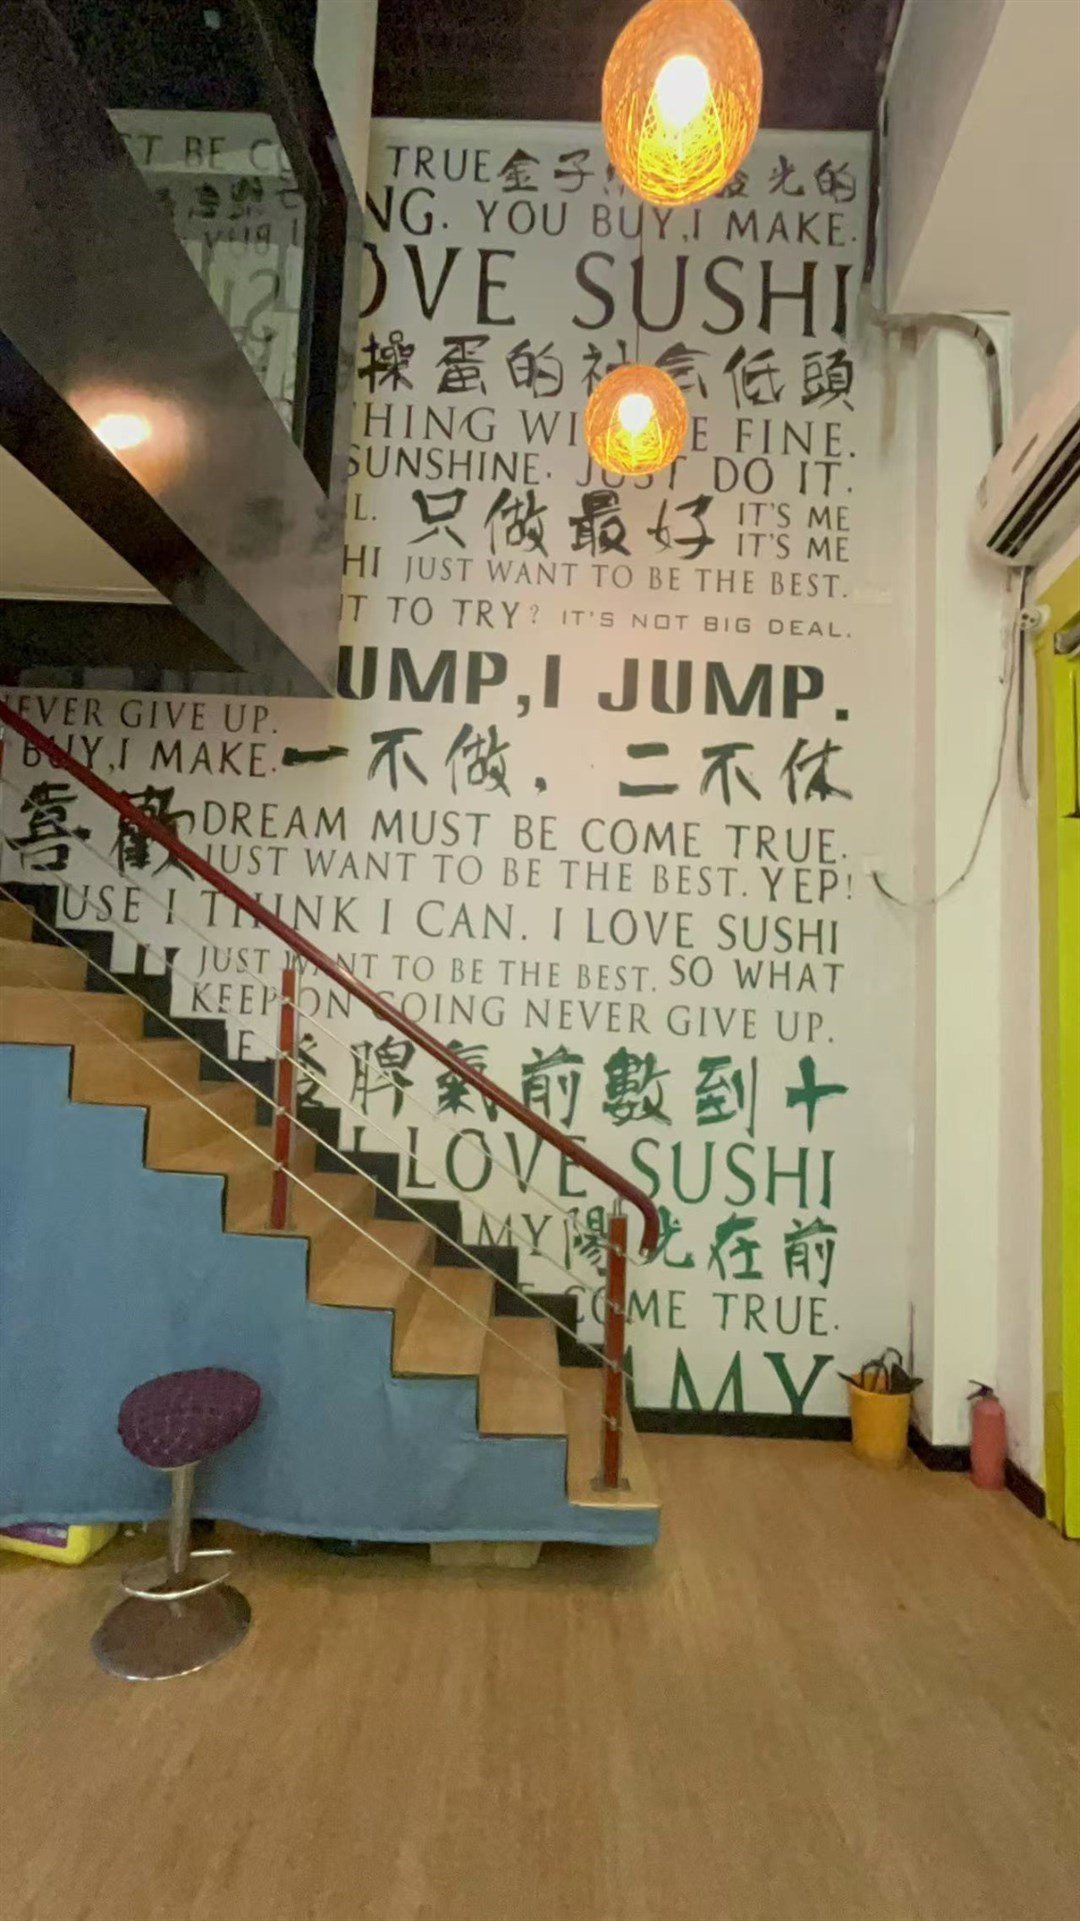 T BE C TRUE金子 光的
NG. YOU BUY,I MAKE.
OVE SUSHI
操蛋的社会低頭
HING WI E FINE.
SUNSHINE. JUST DO IT.
L. 只做最好 IT'S ME
IT'S ME
HI JUST WANT TO BE THE BEST.
T TO TRY? IT'S NOT BIG DEAL.
UMP,I JUMP.
EVER GIVE UP.
BUY,I MAKE.一不做，二不休
喜歡DREAM MUST BE COME TRUE.
JUST WANT TO BE THE BEST. YEP!
USE I THINK I CAN. I LOVE SUSHI
JUST WANT TO BE THE BEST. SO WHAT
KEEP ON GOING NEVER GIVE UP.
脾氣前數到十
I LOVE SUSHI
MY陽光在前
COME TRUE.
MY